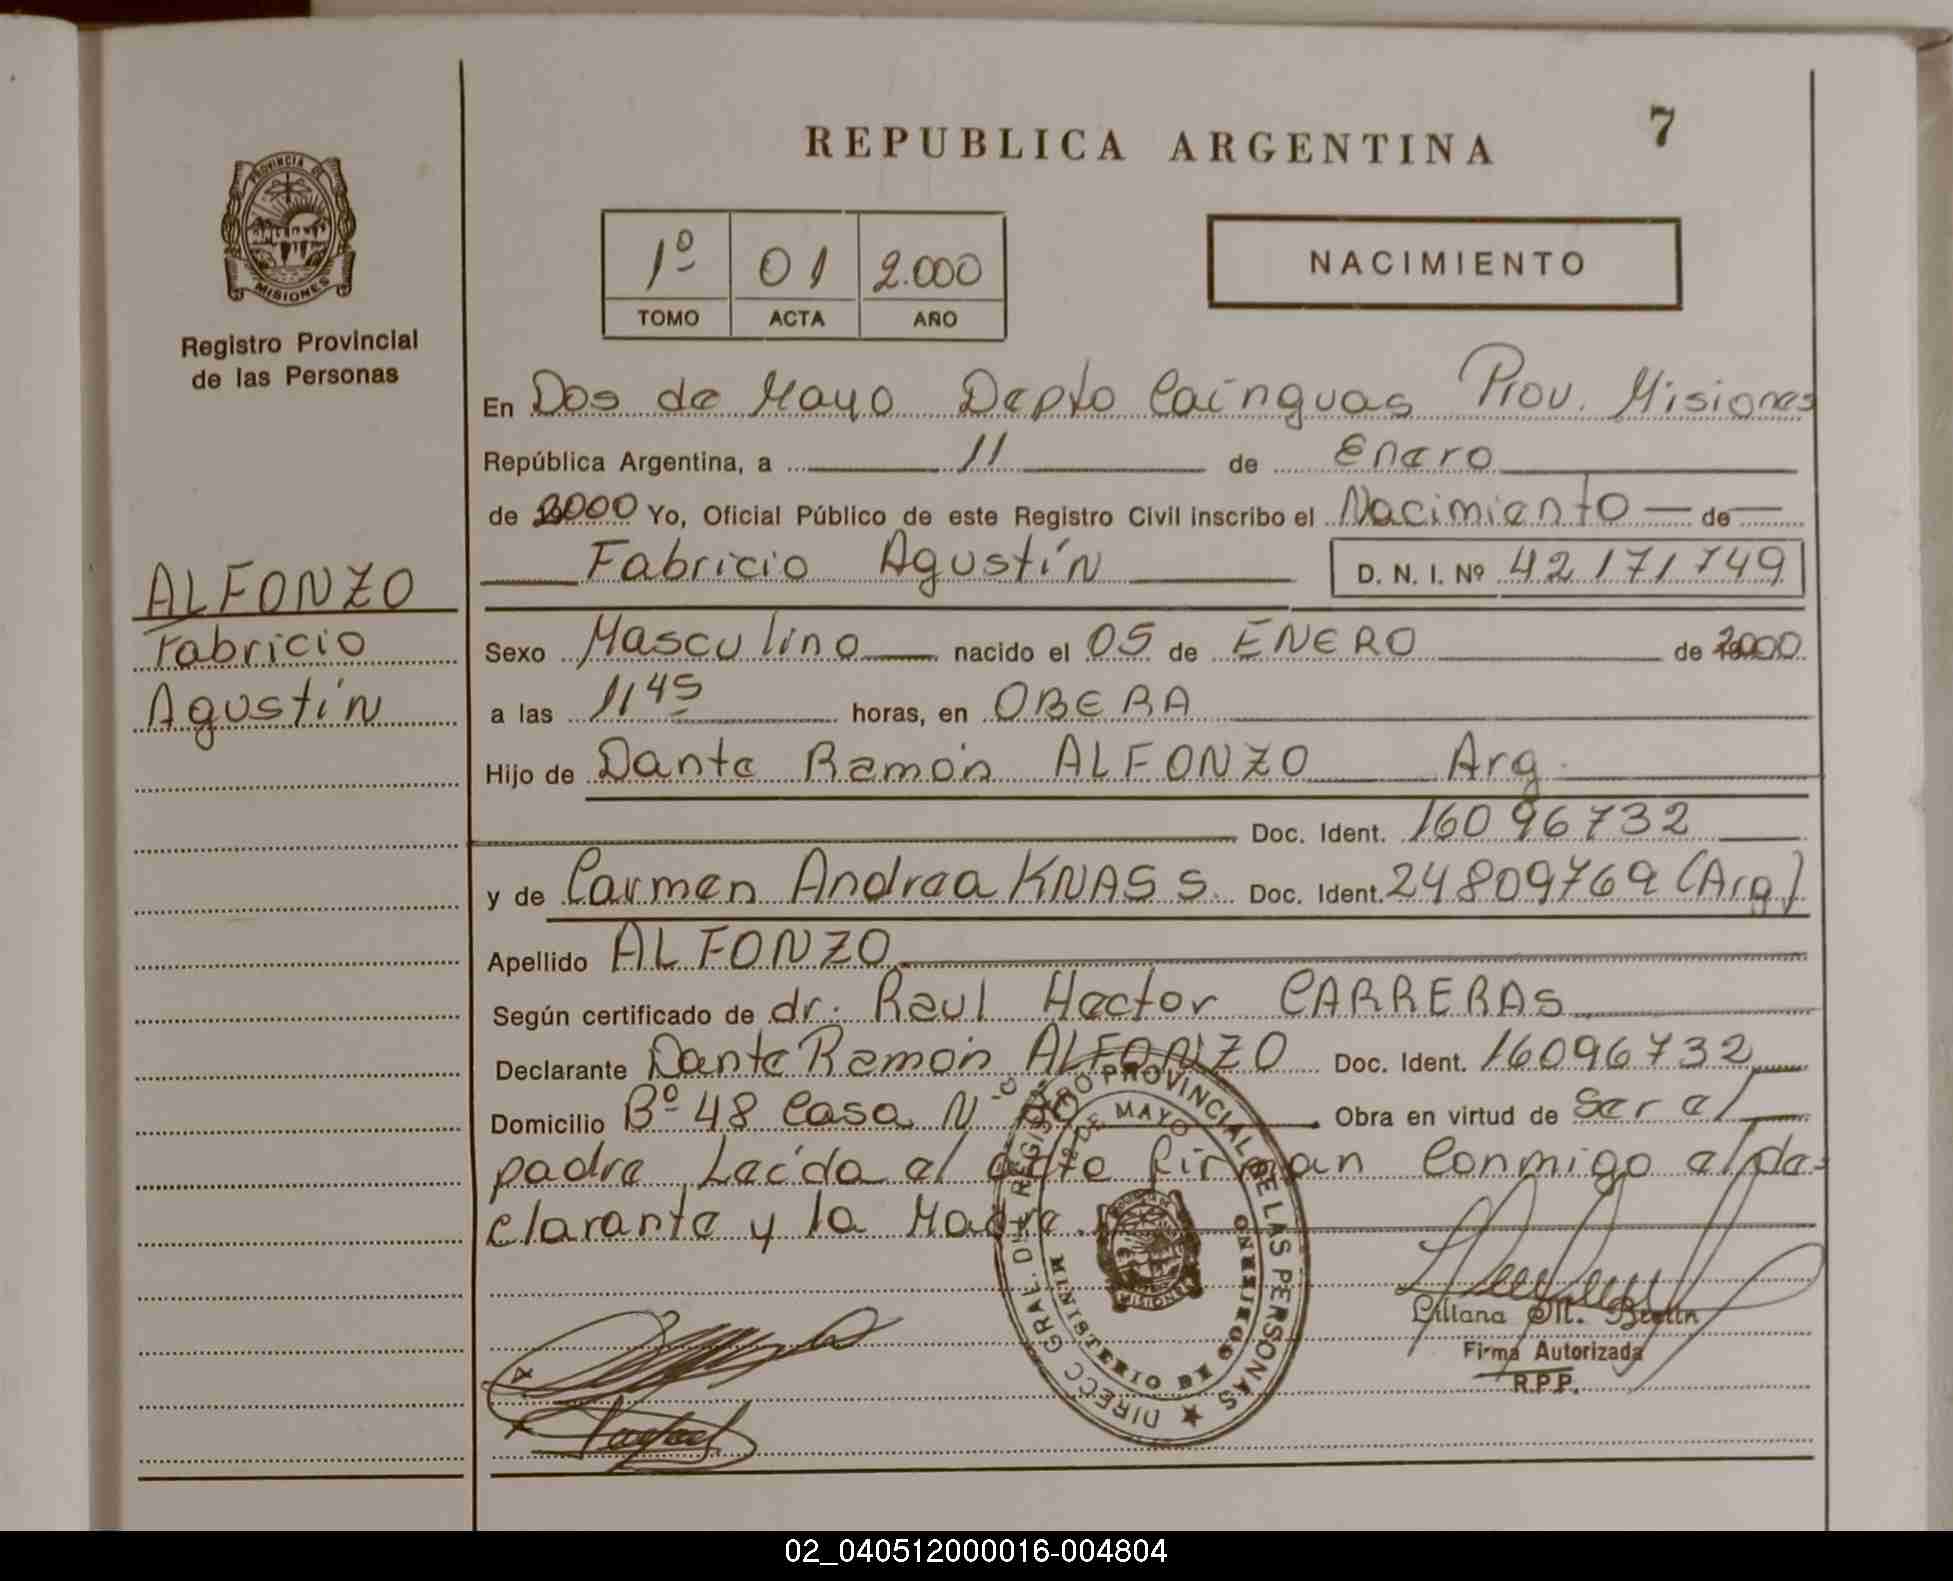 REPUBLICA ARGENTINA
7
PROVINCIA DE
MISIONES
Registro Provincial
de las Personas
1º 01 2.000
TOMO ACTA AÑO
NACIMIENTO
En Dos de Mayo Depto Cainguas Prov. Misiones
República Argentina, a 11 de Enero
de 2000 Yo, Oficial Público de este Registro Civil inscribo el Nacimiento de
Fabricio Agustín D. N. I. Nº 42171749
ALFONZO
Fabricio
Agustín
Sexo Masculino nacido el 05 de ENERO de 2000
a las 11 45 horas, en OBERA
Hijo de Dante Ramón ALFONZO Arg.
Doc. Ident. 16096732
y de Carmen Andrea KNASS. Doc. Ident. 24809769 (Arg)
Apellido ALFONZO
Según certificado de dr. Raul Hector CARRERAS
Declarante Dante Ramón ALFONZO Doc. Ident. 16096732
Domicilio Bº 48 Casa Nº Obra en virtud de Ser el
padre Leída el acta firman Conmigo el de-
clarante y la Madre.
DIRECC GRAL. DEL REGISTRO PROVINCIAL DE LAS PERSONAS
2 DE MAYO
MINISTERIO DE GOBIERNO
MISIONES
Liliana M.
Firma Autorizada
R.P.P.
02_040512000016-004804